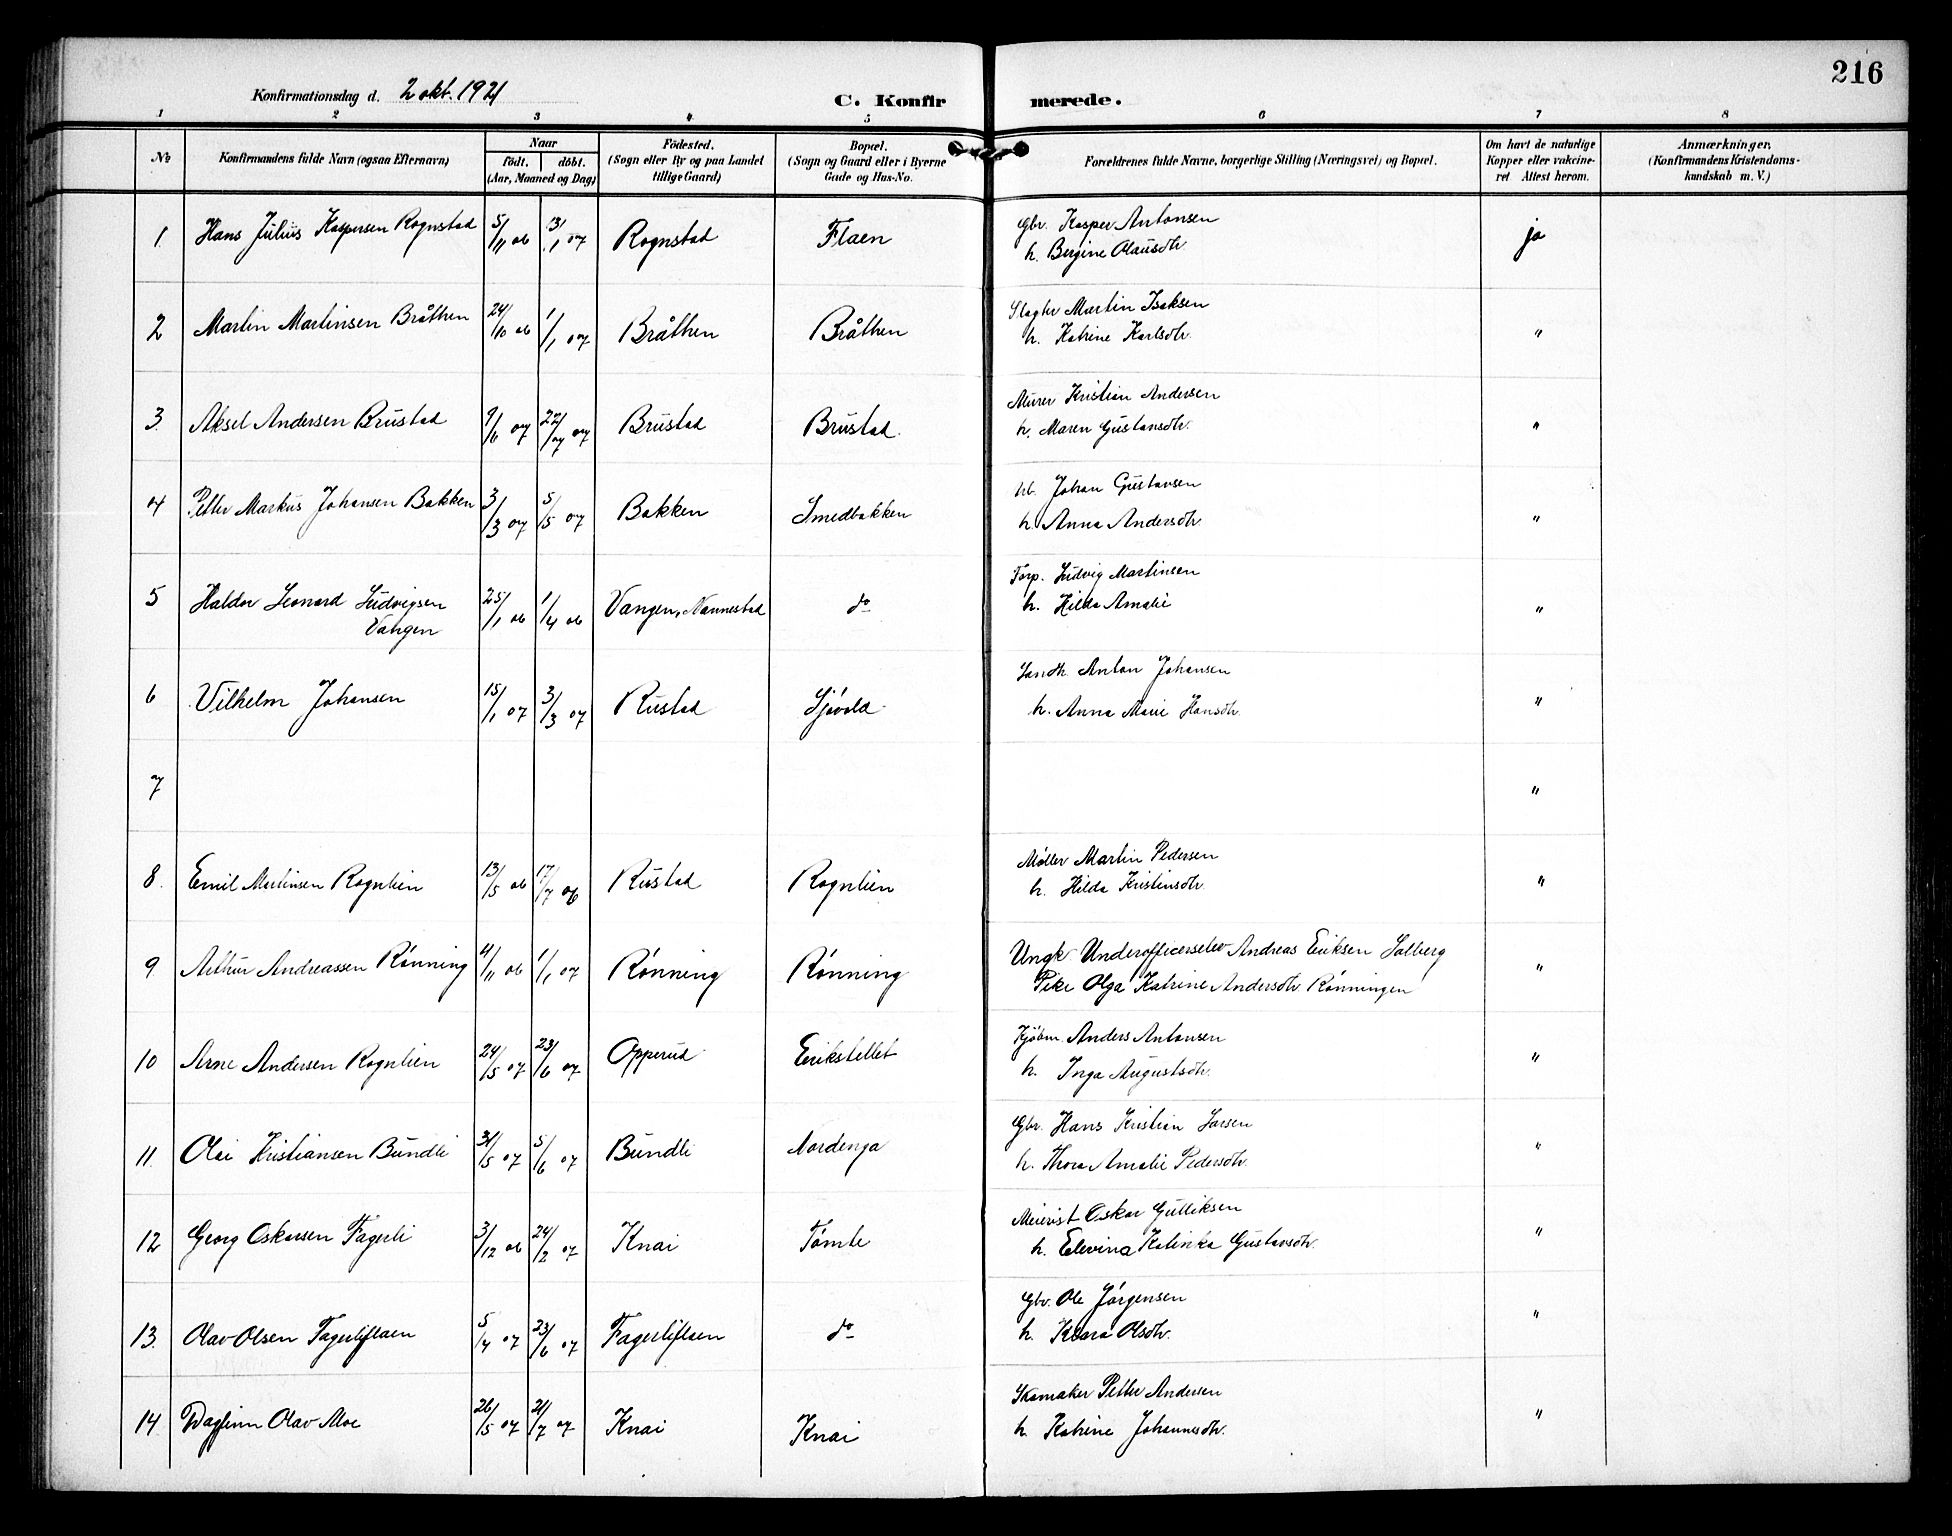 216
Konfirmationsdag d. 2 okt. 1921
C. Konfirmerede.
1 2 3 4 5 6 7 8
No
Konfirmandens fulde Navn (ogsaa Efternavn)
Naar
födt. döbt.
(Aar, Maaned og Dag)
Födested.
(Sogn eller By og paa Landet
tillige Gaard)
Bopæl.
(Sogn og Gaard eller i Byerne
Gade og Hus-No.
Forældrenes fulde Navne, borgerlige Stilling (Næringsvei) og Bopæl.
Om havt de naturlige
Kopper eller vakcine-
ret Attest herom.
Anmærkninger.
(Konfirmandens Kristendoms-
kundskab m. V.)
1 Hans Julius Kaspersen Rognstad 5/11 06 13/1 07 Rognstad Flaen Gbr. Kasper Antonsen ja
h. Bergine Olausdtr.
2 Martin Martinsen Bråthen 24/10 06 1/1 07 Bråthen Bråthen Slagter Martin Isaksen "
h. Katrine Karlsdtr.
3. Aksel Andersen Brustad 9/6 07 22/07 07 Brustad Brustad. Murer Kristian Andersen "
h. Maren Gustavsdtr.
4 Petter Markus Johansen Bakken 3/3 07 5/5 07 Bakken Smedbakken Johan Gustavsen "
h. Anna Andersdtr.
5 Haldor Leonard Ludvigsen 25/1 06 1/4 06 Vangen, Nannestad do Torp. Ludvig Martinsen "
Vangen h. Hilda Amalie
6 Vilhelm Johansen 15/1 07 3/3 07 Rustad Sjøvold Landh. Anton Johansen "
h. Anna Marie Hansdtr.
7 "
8. Emil Martinsen Rognlien 13/5 06 17/7 06 Rustad Rognlien Møller Martin Pedersen "
h. Hilda Kristinsdtr.
9 Arthur Andreassen Rönning 4/11 06 1/1 07 Rönning Rönning Ungk. Underofficerselev Andreas Eriksen Solberg "
Pike Olga Katrine Andersdtr. Rönningen
10 Arne Andersen Rognlien 24/5 07 23/6 07 Opperud Erikstellet Kjøbm. Anders Antonsen "
h. Inga Augustsdtr.
11. Olai Kristiansen Bundli 31/5 07 5/6 07 Bundli Nordenga Gbr. Hans Kristian Larsen "
h. Thora Amalie Pedersdtr.
12 Georg Oskarsen Fagerli 3/12 06 24/2 07 Knai Tömte Meierist Oskar Gulliksen "
h. Elevina Katinka Gustavsdtr.
13. Olav Olsen Fagerliflaen 5/4 07 23/6 07 Fagerliflaen do Gbr. Ole Jörgensen "
h. Klara Olsdtr.
14 Dagfinn Olav Moe 26/5 07 21/7 07 Knai Knai Skomaker Petter Andersen "
h. Katrine Johannesdtr.